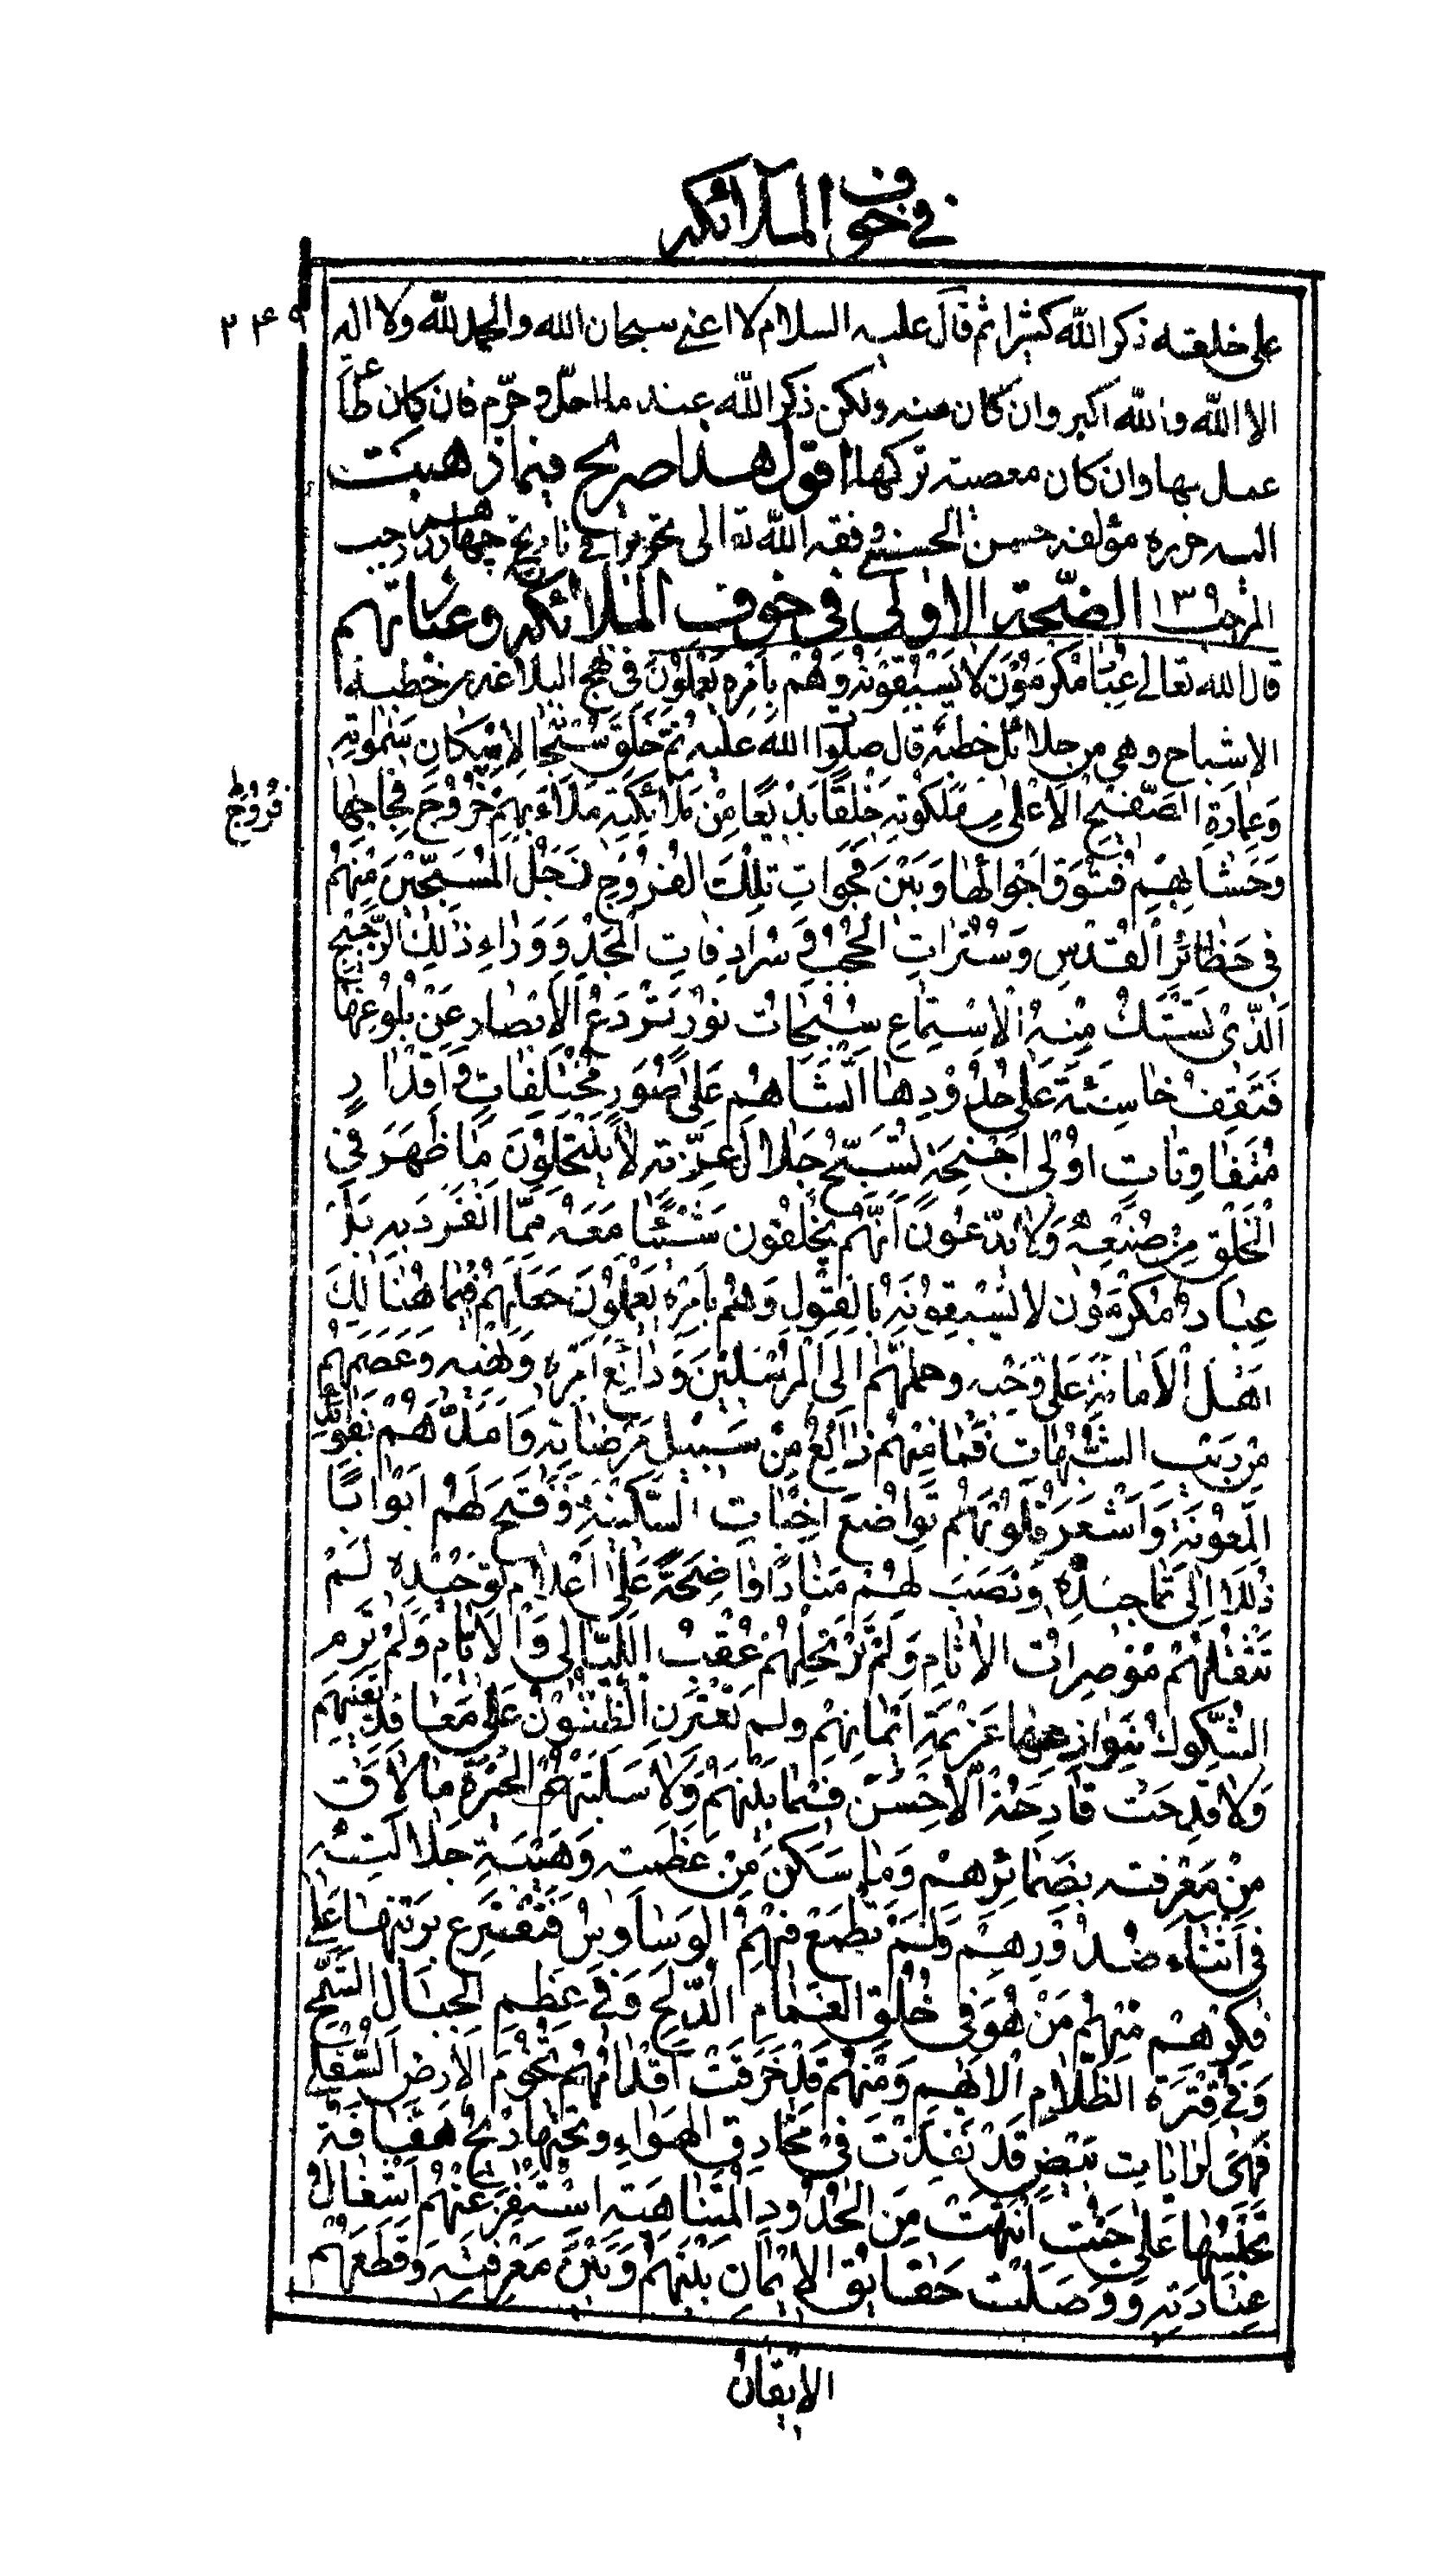 في خوف الملائكه
على خلقته ذكر الله كثيرا ثم قال عليه السلام لا اعني سبحان الله والحمد لله ولا اله
۲۴۹
الا الله والله اكبر وان كان منه ولكن ذكر الله عند ما احل وحرم فان كان طاعة
عمل بها وان كان معصية تركها اقول هذا صريح فيما ذهبت
اليه حرره مؤلفه حسن الحسني وفقه الله تعالى تحريرا في تاريخ چهاردهم رجب
المرجب ۱۳۹ الضجة الاولى في خوف الملائكه وعباداتهم
قال الله تعالى عباد مكرمون لا يسبقونه وهم بامره يعملون في نهج البلاغه من خطبة
الاشباح وهي من جلائل خطبه قال صلوات الله عليه ثم خلق سبحانه لاسكان سمواته
وعمارة الصفيح الاعلى من ملكوته خلقا بديعا من ملائكته ملاء بهم خروج فجاجها
فروج ظ
وحشا بهم فتوق اجوائها وبين فجوات تلك الفروج زجل المسبحين منهم
في حظائر القدس وسترات الحجب وسرادقات المجد ووراء ذلك الرجيج
الذي تستك منه الاستماع سبحات نور تردع الابصار عن بلوغها
فتقف خاسئة على حدودها انشاهم على صور مختلفات واقدار
متفاوتات اولى اجنحة تسبح جلال عزته لا ينتحلون ما ظهر في
الخلق من صنعه ولا يدعون انهم يخلقون شيئا معه مما انفرد به بل
عباد مكرمون لا يسبقونه بالقول وهم بامره يعملون جعلهم فيما هنالك
اهل الامانة على وحيه وحملهم الى المرسلين ودائع امره ونهيه وعصمهم
من ريب الشبهات فما منهم زائغ من سبيل مرضاته وامدهم بفوائد
المعونة واشعر قلوبهم تواضع اخبات السكينة وفتح لهم ابوابا
ذللا الى تماجيده ونصب لهم منارا واضحة على اعلام توحيده لم
تثقلهم موصرات الاثام ولم ترتحلهم عقب الليالي والايام ولم ترم
الشكوك بنوازعها عزيمة ايمانهم ولم تعترك الظنون على معاقد يقينهم
ولا قدحت قادحة الاحن فيما بينهم ولا سلبتهم الحيرة ما لاق
من معرفته بضمائرهم وما سكن من عظمته وهيبة جلالته
في اثناء صدورهم ولم تطمع فيهم الوساوس فتقترع برينها على
فكرهم منهم من هو في خلق الغمام الدلح وفي عظم الجبال الشمخ
وفي قترة الظلام الايهم ومنهم قد خرقت اقدامهم تخوم الارض السفلى
فهي كرايات بيض قد نفذت في مخارق الهواء وتحتها ريح هفافة
تحبسها على حيث انتهت من الحدود المتناهية استفرغتهم اشغال
عبادته ووصلت حقايق الايمان بينهم وبين معرفته وقطعهم
الايقان